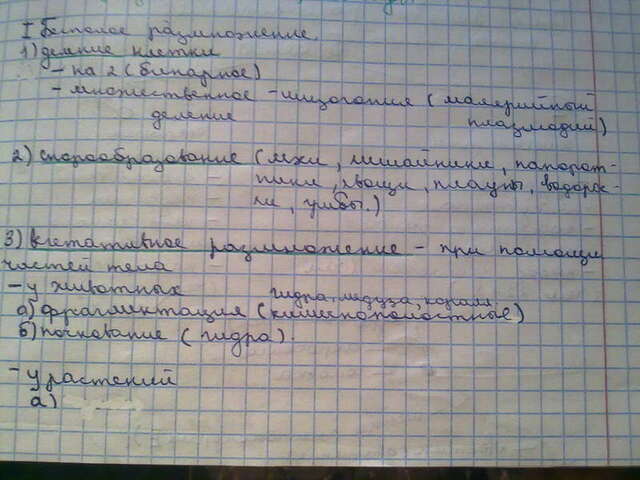 I Бесполое размножение.
1) деление клетки
- на 2 (бинарное)
- множественное - шизогония (малярийный
деление плазмодий)
2) спорообразование (мхи, лишайники, папорот-
ники, хвощи, плауны, водорос-
ли, грибы.)
3) вегетативное размножение - при помощи
частей тела
- у животных гидра, медуза, коралл
а) фрагментация (кишечнополостные)
б) почкование (гидра).
- у растений
а)